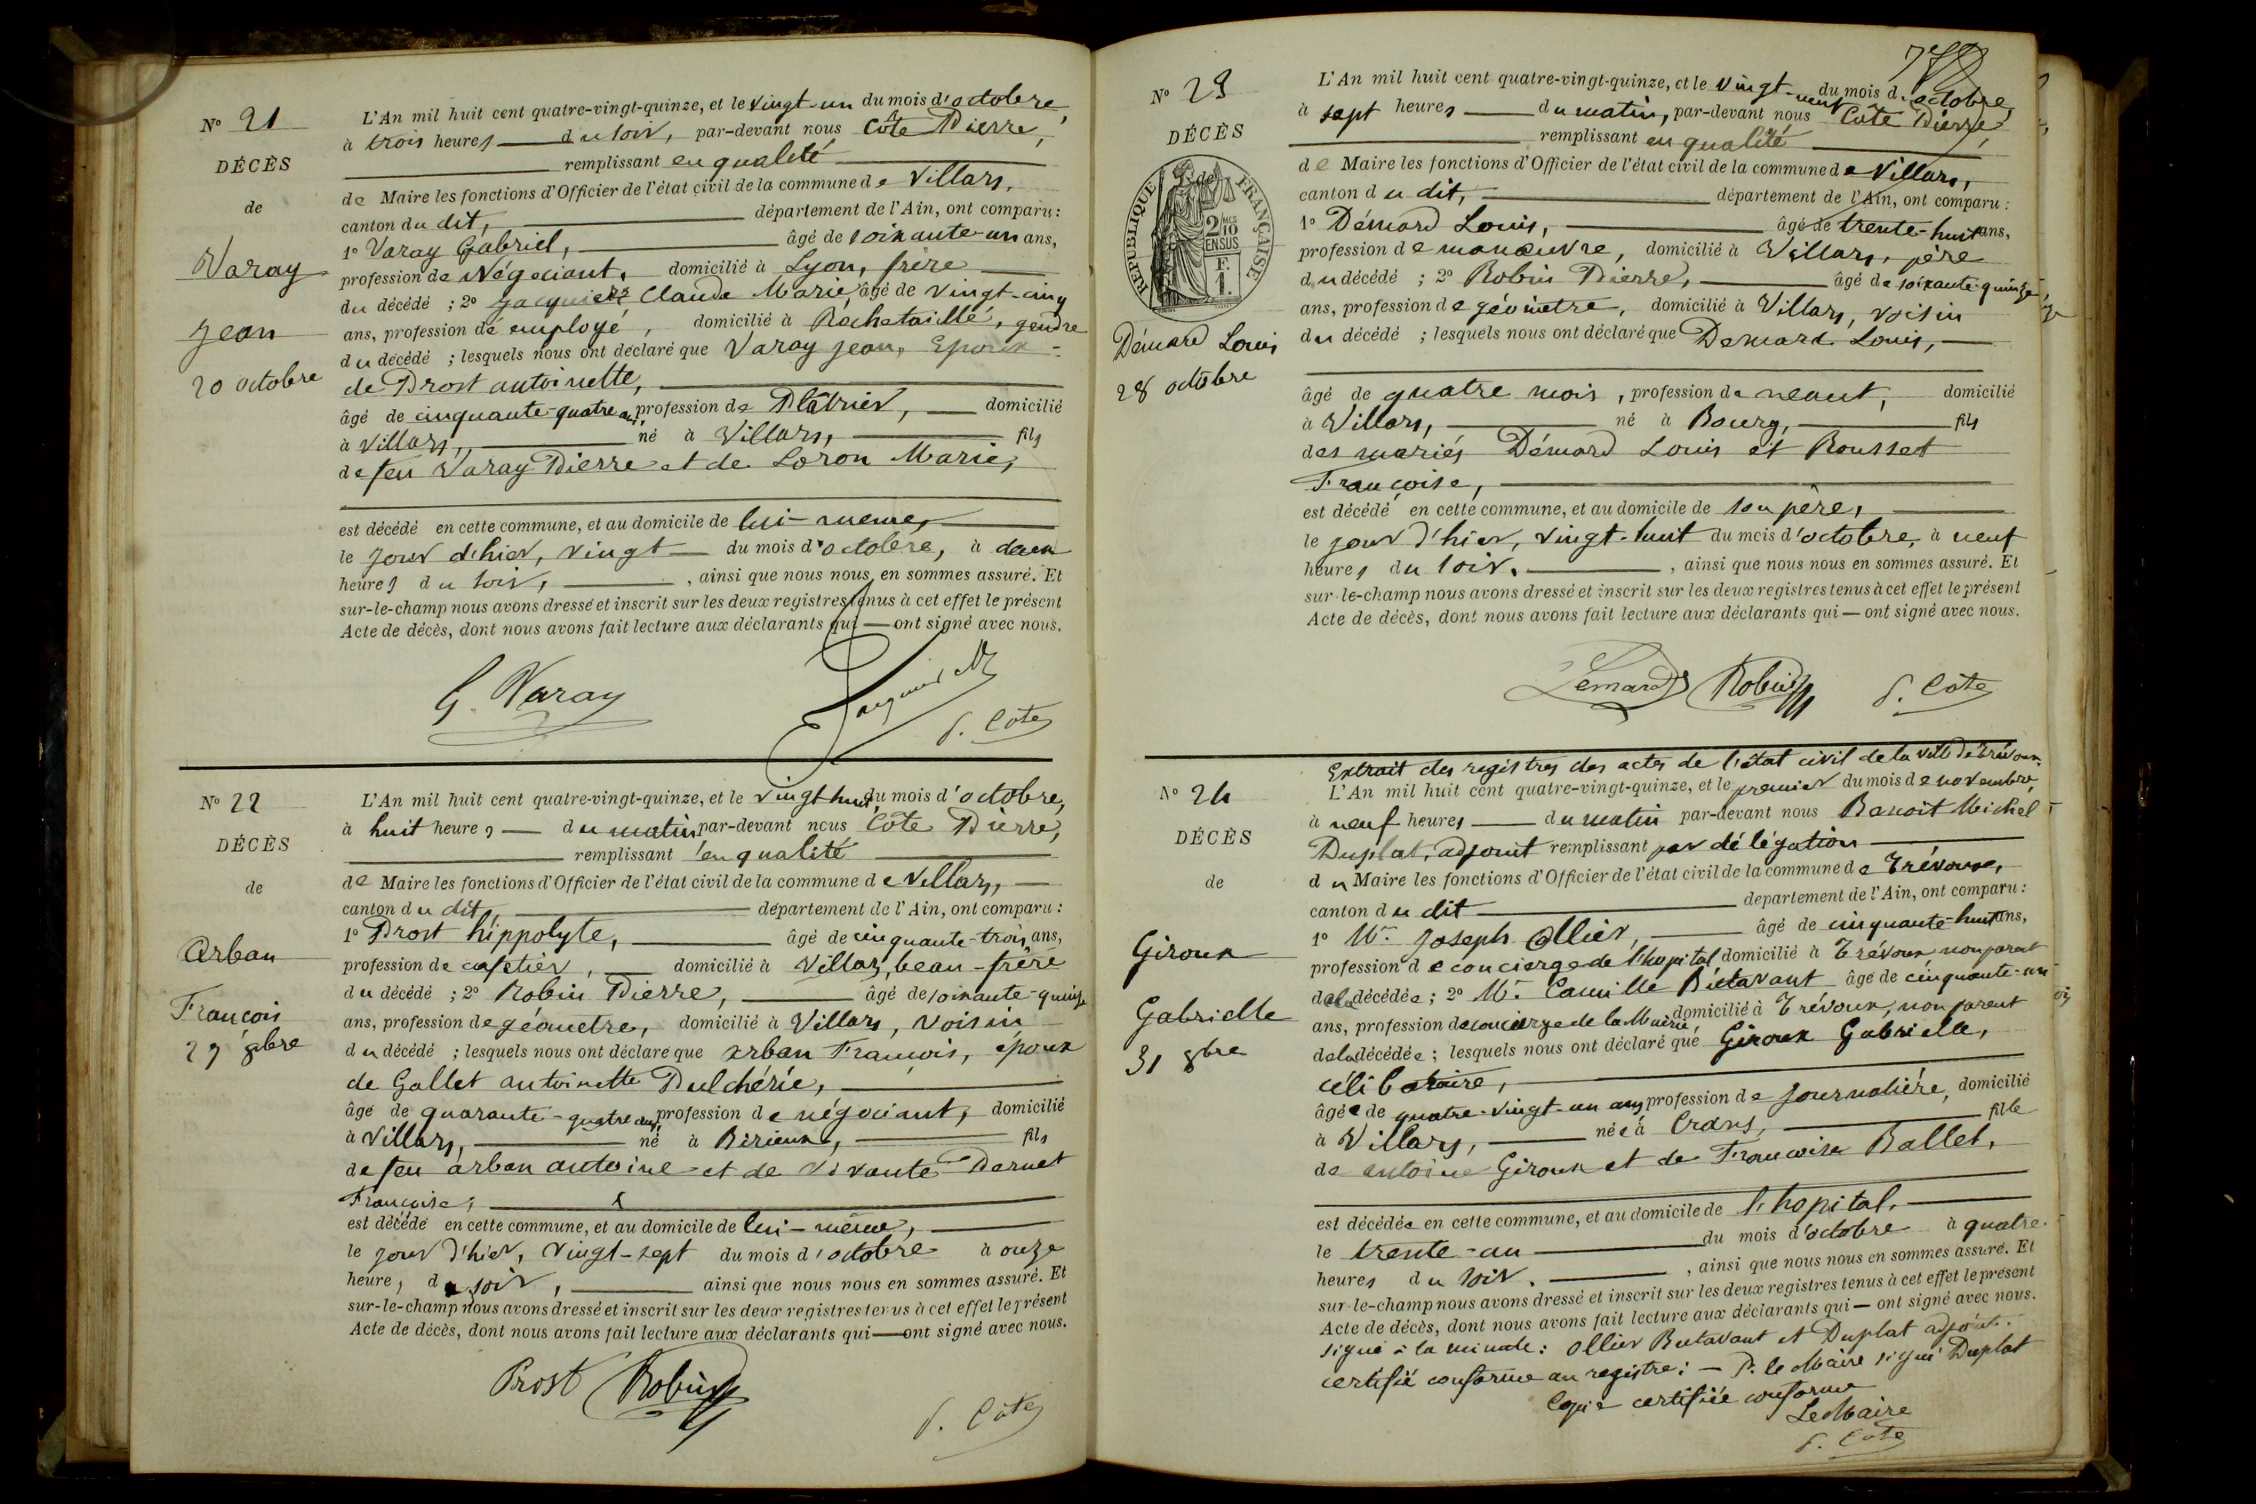 N° 21
DÉCÈS
de
Varay
Jean
20 octobre
L'An mil huit cent quatre-vingt-quinze, et le vingt-un du mois d'octobre,
à trois heures du soir, par-devant nous Côte Pierre,
remplissant en qualité
de Maire les fonctions d'Officier de l'état civil de la commune de Villars,
canton du dit, département de l'Ain, ont comparu :
1° Varay Gabriel, âgé de soixante-un ans,
profession de Négociant, domicilié à Lyon, frère
du décédé ; 2° Claude Marie, âgé de vingt-cinq
ans, profession de employé, domicilié à Rochetaillé, gendre
du décédé ; lesquels nous ont déclaré que Varay Jean, Epoux
de Prost antoinette,
âgé de cinquante-quatre ans, profession de Plâtrier, domicilié
à Villars, né à Villars, fils
de feu Varay Pierre et de Loron Marie,
est décédé en cette commune, et au domicile de lui-meme,
le jour d'hier, vingt du mois d'octobre, à deux
heures du soir, , ainsi que nous nous en sommes assuré. Et
sur-le-champ nous avons dressé et inscrit sur les deux registres tenus à cet effet le présent
Acte de décès, dont nous avons fait lecture aux déclarants qui — ont signé avec nous.
G. Varay
P. Côte
N° 22
DÉCÈS
de
Arban
François
27 8bre
L'An mil huit cent quatre-vingt-quinze, et le vingt-huit du mois d'octobre,
à huit heures du matin par-devant nous Côte Pierre,
remplissant en qualité
de Maire les fonctions d'Officier de l'état civil de la commune de Villars,
canton du dit, département de l'Ain, ont comparu :
1° Prost hippolyte, âgé de cinquante-trois ans,
profession de cafetier, domicilié à Villars, beau-frère
du décédé ; 2° Robin Pierre, âgé de soixante-quinze
ans, profession de géomètre, domicilié à Villars, voisin
du décédé ; lesquels nous ont déclaré que arban François, époux
de Gallet antoinette Pulchérie,
âgé de quarante-quatre ans, profession de négociant, domicilié
à Villars, né à Birieux, fils
de feu arban antoine et de vivante Darnet
Françoise,
est décédé en cette commune, et au domicile de lui-même,
le jour d'hier, vingt-sept du mois d'octobre à onze
heures du soir, ainsi que nous nous en sommes assuré. Et
sur-le-champ nous avons dressé et inscrit sur les deux registres tenus à cet effet le présent
Acte de décès, dont nous avons fait lecture aux déclarants qui — ont signé avec nous.
Prost Robin
P. Côte
N° 23
DÉCÈS
de
RÉPUBLIQUE FRANÇAISE
2/10 EN SUS
F. 1.
Démard Louis
28 octobre
L'An mil huit cent quatre-vingt-quinze, et le vingt-neuf du mois d'octobre,
à sept heures du matin, par-devant nous Côte Pierre,
remplissant en qualité
de Maire les fonctions d'Officier de l'état civil de la commune de Villars,
canton du dit, département de l'Ain, ont comparu :
1° Démard Louis, âgé de trente-huit ans,
profession de manœuvre, domicilié à Villars, père
du décédé ; 2° Robin Pierre, âgé de soixante-quinze
ans, profession de géomètre, domicilié à Villars, voisin
du décédé ; lesquels nous ont déclaré que Demard Louis,
âgé de quatre mois, profession de neant, domicilié
à Villars, né à Bourg, fils
des mariés Démard Louis et Rousset
Françoise,
est décédé en cette commune, et au domicile de son père,
le jour d'hier, vingt-huit du mois d'octobre, à neuf
heures du soir. , ainsi que nous nous en sommes assuré. Et
sur-le-champ nous avons dressé et inscrit sur les deux registres tenus à cet effet le présent
Acte de décès, dont nous avons fait lecture aux déclarants qui — ont signé avec nous.
Demard Robin P. Côte
N° 24
DÉCÈS
de
Giroux
Gabrielle
31 8bre
Extrait des registres des actes de l'état civil de la ville de Trévoux.
L'An mil huit cent quatre-vingt-quinze, et le premier du mois de novembre,
à neuf heures du matin par-devant nous Benoit Michel
Duplat, adjoint remplissant par délégation
du Maire les fonctions d'Officier de l'état civil de la commune de Trévoux,
canton du dit département de l'Ain, ont comparu :
1° Mr. Joseph Ollier, âgé de cinquante-huit ans,
profession de concierge de l'hopital domicilié à Trévoux, non parent
de la décédée ; 2° Mr. Camille Biétavant âgé de cinquante-un
ans, profession de concierge de la Mairie, domicilié à Trévoux, non parent
de la décédée ; lesquels nous ont déclaré que Giroux Gabrielle,
célibataire,
âgée de quatre-vingt-un ans profession de journalière, domicilié
à Villars, née à Crans, fille
de antoine Giroux et de Françoise Ballet,
est décédée en cette commune, et au domicile de l'hopital,
le trente-un du mois d'octobre à quatre
heures du soir. , ainsi que nous nous en sommes assuré. Et
sur-le-champ nous avons dressé et inscrit sur les deux registres tenus à cet effet le présent
Acte de décès, dont nous avons fait lecture aux déclarants qui — ont signé avec nous.
signé à la minute : Ollier Bietavant et Duplat adjoint.
certifié conforme au registre : — P. le Maire signé Duplat
Copie certifiée conforme
Le Maire
P. Côte